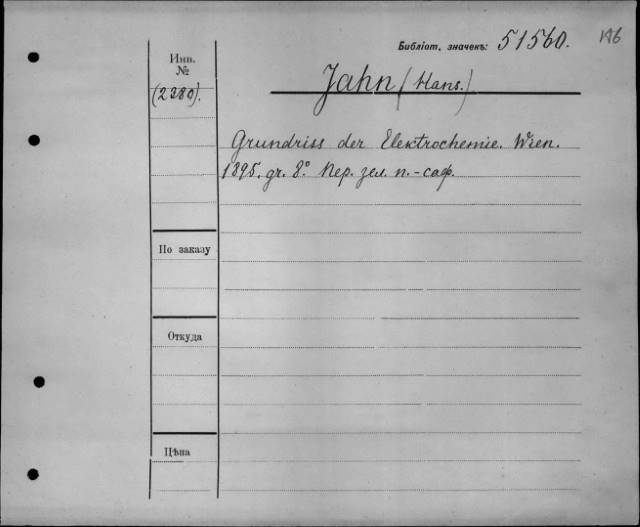 Библіот. значекъ: 51560. 146
Инв.
№
(2280).
Jahn (Hans.)
Grundriss der Elektrochemie. Wien.
1895. gr. 8° Пер. зел. п.-саф.
По заказу
Откуда
Цѣна